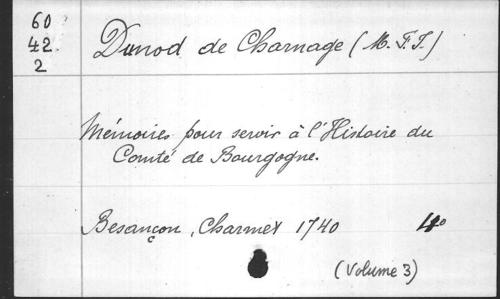 60
42.
2
Dunod de Charnage (M. F. J.)
Mémoires pour servir à l'Histoire du
Comté de Bourgogne.
Besançon, Charmet 1740 4o
(Volume 3)